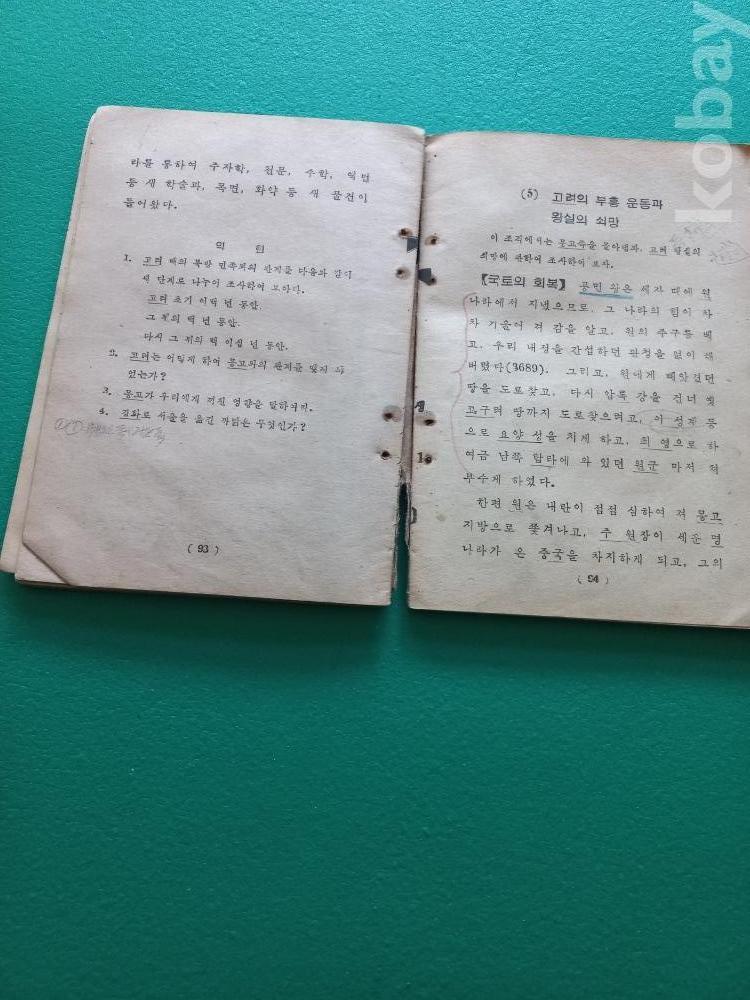 라를 통하여 주자학, 천문, 수학, 역법
등 새 학술과, 목면, 화약 등 새 물건이
들어왔다.
익 힘
1. 고려 때의 북방 민족과의 관계를 다음과 같이
세 단계로 나누어 조사하여 보아라.
고려 초기 이백 년 동안.
그 뒤의 백 년 동안.
다시 그 뒤의 백 이십 년 동안.
2. 고려는 어떻게 하여 몽고와의 관계를 맺게 되
었는가?
3. 몽고가 우리에게 끼친 영향을 말하여라.
4. 강화로 서울을 옮긴 까닭은 무엇인가?
( 93 )
(5) 고려의 부흥 운동과
왕실의 쇠망
이 조직에서는 몽고족을 몰아냄과, 고려 왕실의
쇠망에 관하여 조사하여 보자.
【국토의 회복】 공민 왕은 세자 때에 원
나라에서 지냈으므로, 그 나라의 힘이 차
차 기울어 져 감을 알고, 원의 주구를 베
고, 우리 내정을 간섭하던 관청을 없이 해
버렸다(3689). 그리고, 원에게 빼앗겼던
땅을 도로찾고, 다시 압록 강을 건너 옛
고구려 땅까지 도로찾으려고, 이 성계 등
으로 요양 성을 치게 하고, 최 영으로 하
여금 남쪽 탐라에 와 있던 원군 마저 쳐
부수게 하였다.
한편 원은 내란이 점점 심하여 져 몽고
지방으로 쫓겨나고, 주 원장이 세운 명
나라가 온 중국을 차지하게 되고, 그의
( 94 )
kobay